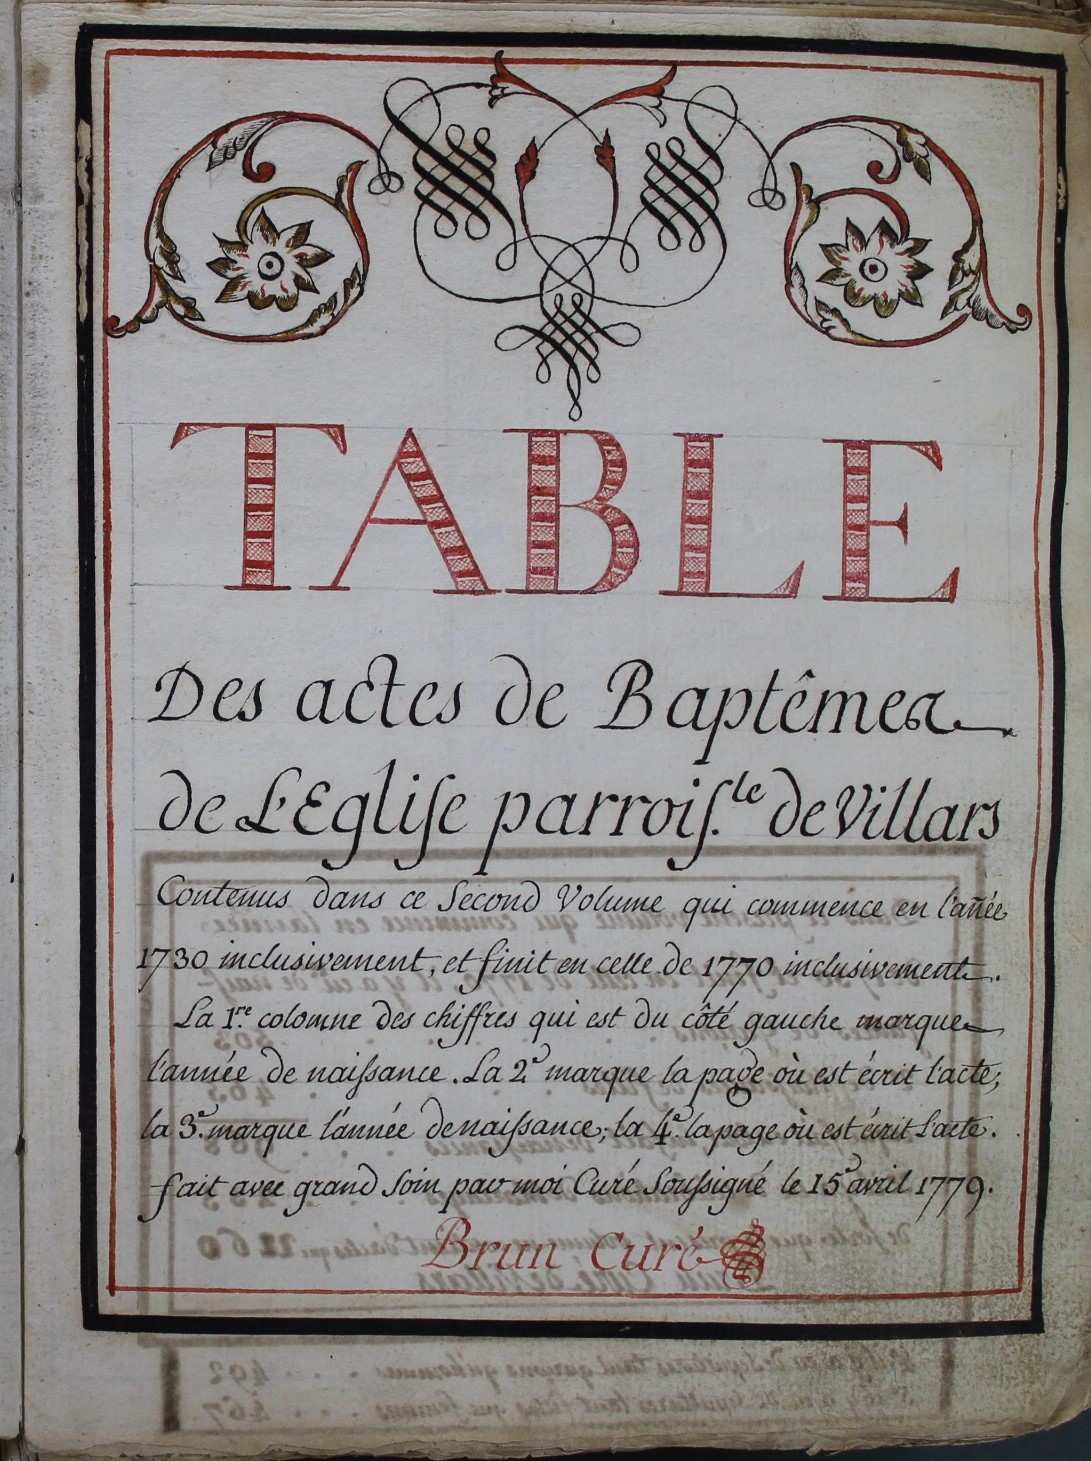 TABLE
Des actes de Baptêmes
de L'Eglise parrois.le de Villars
Contenus dans ce Second Volume qui commence en l'añée
1730 inclusivement, et finit en celle de 1770 inclusivement.
La 1.re colomne des chiffres qui est du côté gauche marque
l'année de naissance. La 2.e marque la page où est écrit l'acte;
la 3.e marque l'année de naissance; la 4.e la page où est écrit l'acte.
fait avec grand soin par moi Curé Soussigné le 15e avril 1779.
Brun Curé